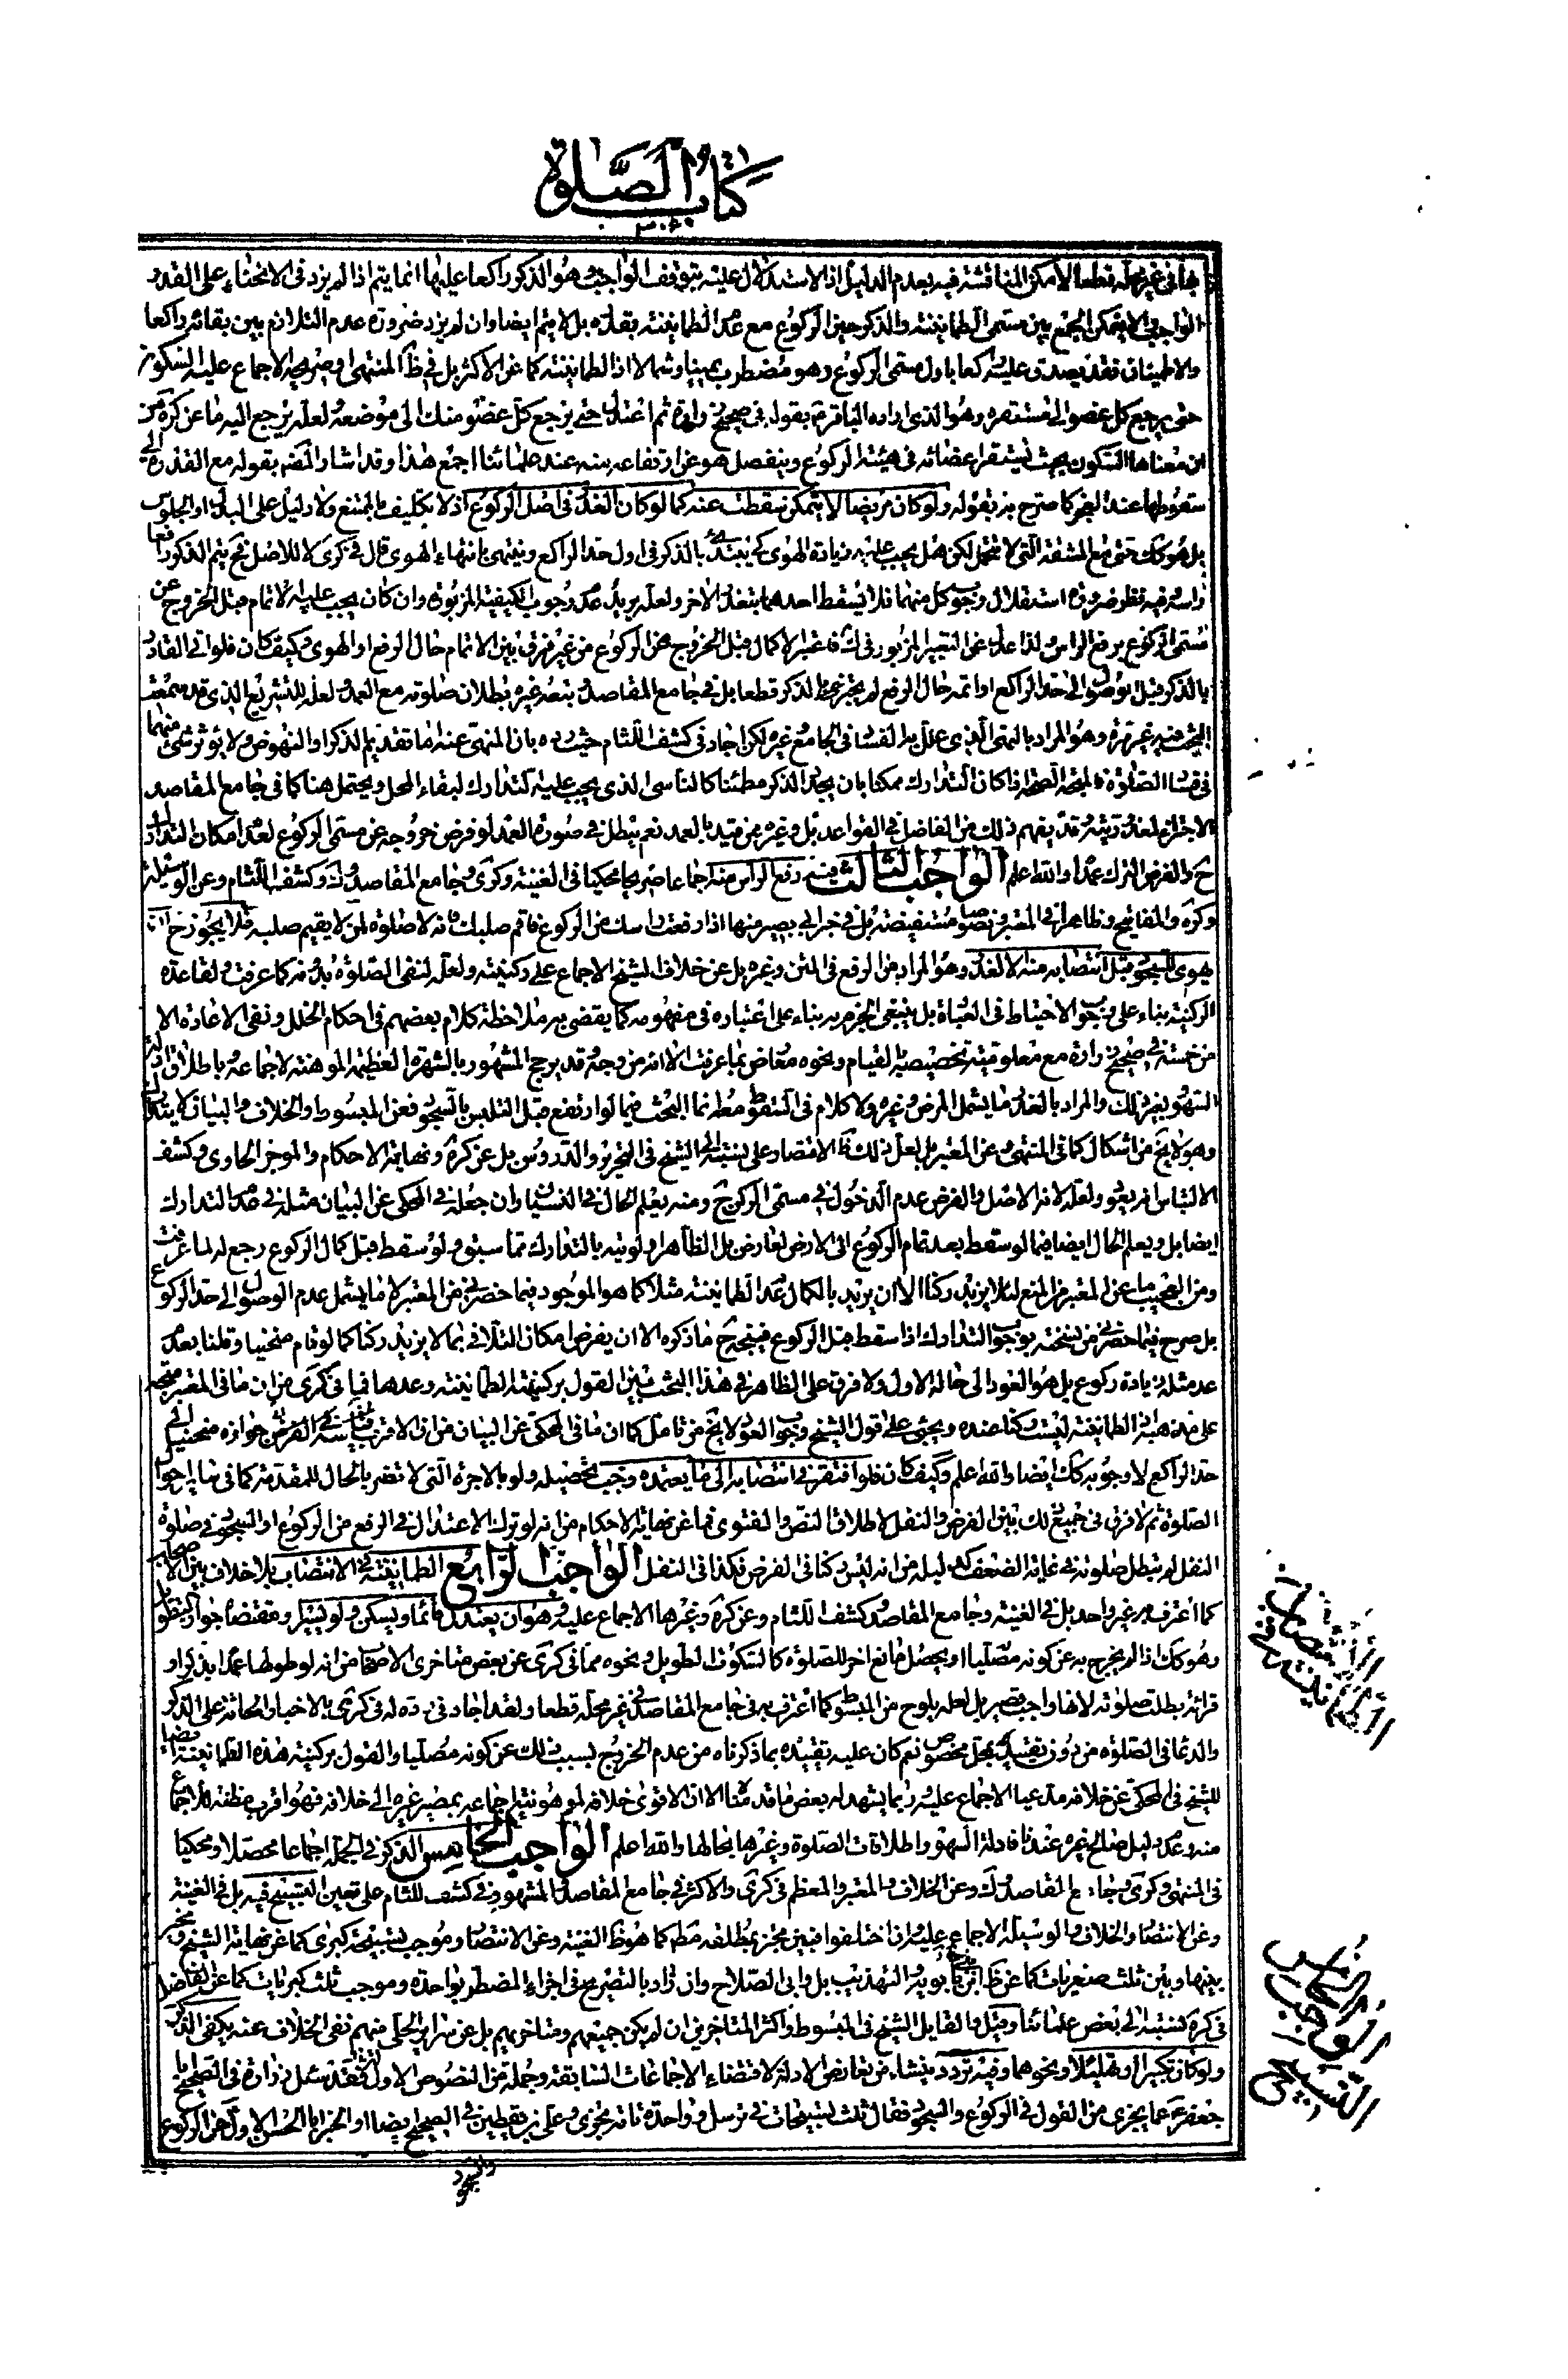 كتاب الصلوة
٣٠٤
في غير محله قطعا لا مكن المناقشة فيه بعدم الدليل اذ الاستدلال عليه بتوقف الواجب وهو الذكر راكعا عليها انما يتم اذا لم يزد في الانحناء على القدر
الواجب اذ لا يمكن الجمع بين مسمى الطمانينة والذكر حين الركوع مع عدم الطمانينة بقدره بل لا يتم ايضا وان لم يزد ضرورة عدم التلازم بين بقائه راكعا
والاطمينان فقد يصدق عليه راكعا باول مسمى الركوع وهو مضطرب يمينا وشمالا اذ الطمانينة كما عن الاكثر بل في ظ المنتهى او صريحه الاجماع عليه السكون
حتى يرجع كل عضو الى مستقره وهو الذي اراده الباقر ع بقوله في صحيح زرارة ثم اعتدل حتى يرجع كل عضو منك الى موضعه ولعله يرجع اليه ما عن كره من
ان معناها السكون بحيث تستقر اعضائه في هيئة الركوع وينفصل هو عن ارتفاعه منه عند علمائنا اجمع هذا وقد اشار المصنف بقوله مع القدرة الى
سقوطها عند العجز كما صرح به بقوله ولو كان مريضا لا يتمكن سقطت عنه كما لو كان العذر في اصل الركوع اذ لا تكليف بالممتنع ولا دليل على البدل او الجلوس
بل هو كك حتى مع المشقة التي لا تتحمل لكن هل يجب عليه زيادة الهوى كي يبتدء بالذكر في اول حد الراكع وينتهى بانتهاء الهوى قال في كرى لا للاصل فح يتم الذكر رافعا
راسه وفيه نظر ضرورة استقلال وجوب كل منهما فلا يسقط احدهما بتعذر الاخر ولعله يريد عدم وجوب الكيفية المزبورة وان كان يجب عليه الاتمام قبل الخروج عن
مسمى الركوع برفع الراس لذا عدل عن التعبير المزبور في ك فاعتبر الاكمال قبل الخروج عن الركوع من غير فرق بين الاتمام حال الرفع او الهوى وكيف كان فلو اتى القادر
بالذكر قبل وصوله الى حد الراكع او اتمه حال الرفع لم يجتز بالذكر قطعا بل في جامع المقاصد وتبعه غيره بطلان صلوته مع العمد ولعله للتشريع الذي قد سمعت
البحث فيه غير مرة وهو المراد بالنهى الذي علل به الفساد في الجامع وغيره لكن اجاد في كشف اللثام حيث رده بان المنهى عنه اما تقديم الذكر او النهوض ولا يؤثر شئ منهما
في فساد الصلوة فالمتجه الصحة اذا كان التدارك ممكنا بان يجدد الذكر مطمئنا كالناسى الذي يجب عليه التدارك لبقاء المحل ويحتمل هنا كما في جامع المقاصد
الاجتزاء لعذريته وقد يفهم ذلك من الفاضل في القواعد بل وغيره ممن قيد بالعمد نعم تبطل في صورة العمد لو فرض خروجه عن مسمى الركوع لعدم امكان التدارك
ح والفرض الترك عمدا والله اعلم الواجب الثالث فيه رفع الراس منه اجماعا صريحا محكيا في الغنية وكرى وجامع المقاصد وك وكشف اللثام وعن الوسيلة
وكره والمفاتيح وظاهرا في المعتبر ونصوصا مستفيضة بل في خبر ابي بصير منها اذا رفعت راسك من الركوع فاقم صلبك فانه لا صلوة لمن لا يقيم صلبه فلا يجوز ح ان
يهوى للسجود قبل انتصابه منه الا لعذر وهو المراد من الرفع في المتن وغيره بل عن خلاف الشيخ الاجماع على ركنيته ولعله لنفى الصلوة بدونه كما عرفت ولقاعدة
الركنية بناء على وجوب الاحتياط في العبادة بل ينبغي الجزم به بناء على اعتباره في مفهومه كما يقضي به ملاحظة كلام بعضهم في احكام الخلل ونفى الاعادة الا
من خمسة في صحيح زرارة مع معلومية تخصيصه بالقيام ونحوه معارض بما عرفت الا انه من وجه وقد يرجح المشهور بالشهرة العظيمة الموهنة لاجماعه باطلاق ادلة
السهو بغير ذلك والمراد بالعذر ما يشمل المرض وغيره ولا كلام في السقوط معه انما البحث فيما لو ارتفع قبل التلبس بالسجود فعن المبسوط والخلاف والبيان لا يتدارك
وهو لا يخ من اشكال كما في المنتهى وعن المعتبر بل لعل ذلك ظ الاقتصار على نسبته الى الشيخ في التحرير والدروس بل عن كره ونهاية الاحكام والموجز الحاوى وكشف
الالتباس انه يعود ولعله لانه الاصل والفرض عدم الدخول في مسمى الركن ح ومنه يعلم الحال في النسيان وان جعله في المحكى عن البيان مثله في عدم التدارك
ايضا بل ويعلم الحال ايضا فيما لو سقط بعد تمام الركوع الى الارض لعارض بل الظاهر اولويته بالتدارك مما سبق ولو سقط قبل كمال الركوع رجع له لما عرفت
ومن العجيب ما عن المعتبر من المنع لئلا يزيد ركنا الا ان يريد بالكمال عدم الطمانينة مثلا كما هو الموجود فيما حضرني من المعتبر لا ما يشمل عدم الوصول الى حد الركوع
بل صرح فيما حضرني من نسخته بوجوب التدارك اذا سقط قبل الركوع فيتجه ح ما ذكره الا ان يفرض امكان التلافي بما لا يزيد ركنا كما لو قام منحنيا وقلنا بعدم
عد مثله زيادة ركوع بل هو العود الى حاله الاول ولا فرق على الظاهر في هذا البحث بين القول بركنية الطمانينة وعدمها فما في كرى من ان ما في المعتبر متجه
على مذهبه ان الطمانينة ليست ركنا عنده ويجئ على قول الشيخ وجوب العود لا يخ من تامل كما ان ما في المحكى عن البيان من ان الاقرب جوازه منحنيا الى
حد الراكع لا وجوبه كك ايضا والله اعلم وكيف كان فلو افتقر في انتصابه الى ما يعتمده وجب تحصيله ولو بالاجرة التي لا تضر بالحال للمقدمة كما في ساير احوال
الصلوة ثم لا فرق في جميع ذلك بين الفرض والنفل لاطلاق النص والفتوى فما عن نهاية الاحكام من انه لو ترك الاعتدال في الرفع من الركوع او السجود في صلوة
النفل لم تبطل صلوته في غاية الضعف كدليله من انه ليس ركنا في الفرض فكذا في النفل الواجب الرابع الطمانينة في الانتصاب بلا خلاف بين الاصحاب
كما اعترف به غير واحد بل في الغنية وجامع المقاصد وكشف اللثام وعن كره وغيرها الاجماع عليه وهو ان يعتدل قائما ويسكن ولو يسيرا ومقتضاه جواز التطويل
وهو كك اذا لم يخرج به عن كونه مصليا او يحصل مانع اخر للصلوة كالسكوت الطويل ونحوه مما في كرى عن بعض متاخرى الاصحاب من انه لو طولها عمدا بذكر او
قرائة بطلت صلوته لانها واجب قصير بل لعله يلوح من المبسوط كما اعترف به في جامع المقاصد في غير محله قطعا ولقد اجاد في رده له في كرى بالاخبار الحاثة على الذكر
والدعاء في الصلوة من دون تقييد بمحل مخصوص نعم كان عليه تقييده بما ذكرناه من عدم الخروج بسبب ذلك عن كونه مصليا والقول بركنية هذه الطمانينة ايضا
للشيخ في المحكى عن خلافه مدعيا الاجماع عليه وربما يشهد له بعض ما قدمناه الا ان الاقوى خلافه لموهونية اجماعه بمصير غيره الى خلافه فهو اقرب مظنة للاجماع
منه وعدم دليل صالح غيره عندنا فادلة السهو واطلاقات الصلوة وغيرها بحالها والله اعلم الواجب الخامس الذكر في الجملة اجماعا محصلا ومحكيا
في المنتهى وكرى وجامع المقاصد وك وعن الخلاف والمعتبر والمعظم في كرى والاكثر في جامع المقاصد والمشهور في كشف اللثام على تعين التسبيح فيه بل في الغنية
وعن الانتصار والخلاف والوسيلة الاجماع عليه وان اختلفوا فبين مجتز بمطلقه مط كما هو ظ الغنية وعن الانتصار وموجب تسبيحة كبرى كما عن نهاية الشيخ ومخير
بينها وبين ثلث صغريات كما عن ظ ابني بابويه والتهذيب بل وابي الصلاح وان زاد بالتصريح في اجزاء المضطر بواحدة وموجب ثلث كبريات كما عن الفاضل
في كره نسبته الى بعض علمائنا وقيل والقايل الشيخ في المبسوط واكثر المتاخرين ان لم يكن جميعهم ومتاخريهم بل عن سراير الحلى منهم نفى الخلاف عنه يكفي الذكر
ولو كان تكبيرا او تهليلا ونحوهما وفيه تردد ينشا من تعارض الادلة لاقتضاء الاجماعات السابقة وجملة من النصوص الاول فقد سئل زرارة في الصحيح ابا
جعفر ع عما يجزى من القول في الركوع والسجود فقال ثلث تسبيحات في ترسل وواحدة تامة تجزى وعلى بن يقطين في الصحيح ايضا او الخبر ابا الحسن الاول ع عن الركوع
والسجود
الرابع
الطمانينة في
الانتصاب
الخامس
الواجب
التسبيح